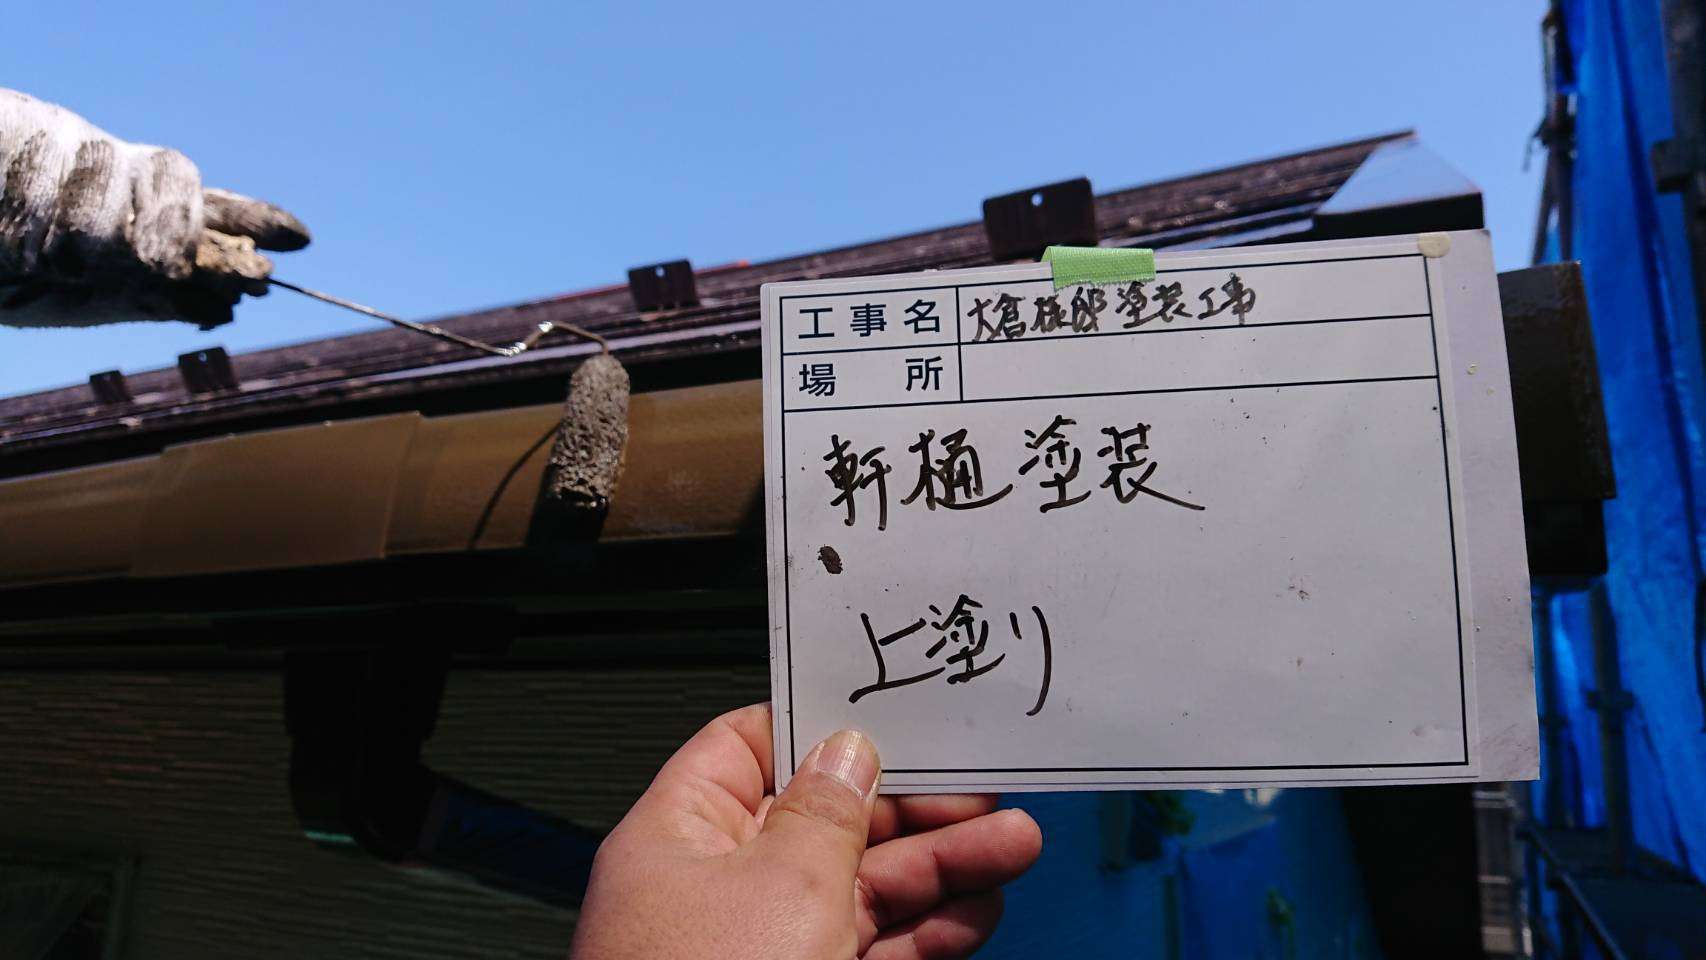 工事名 大倉様邸塗装工事
場所
軒樋塗装
上塗り